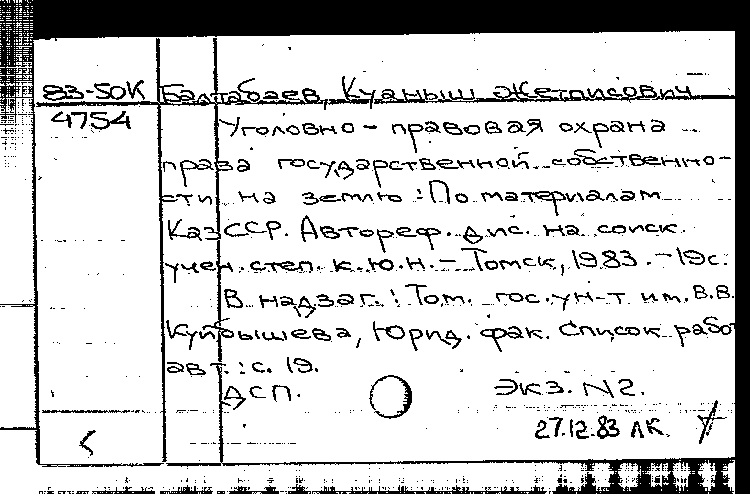 83-50К Балтабаев, Куаныш Жетписович
4754 Уголовно-правовая охрана
права государственной собственно-
сти на землю: По материалам
КазССР. Автореф. дис. на соиск.
учен. степ. к.ю.н. - Томск, 1983. - 19с.
В надзаг.: Том. гос. ун-т им. В.В.
Куйбышева, Юрид. фак. Список работ
авт.: с. 19.
ДСП. Экз. N2.
27.12.83 ЛК.